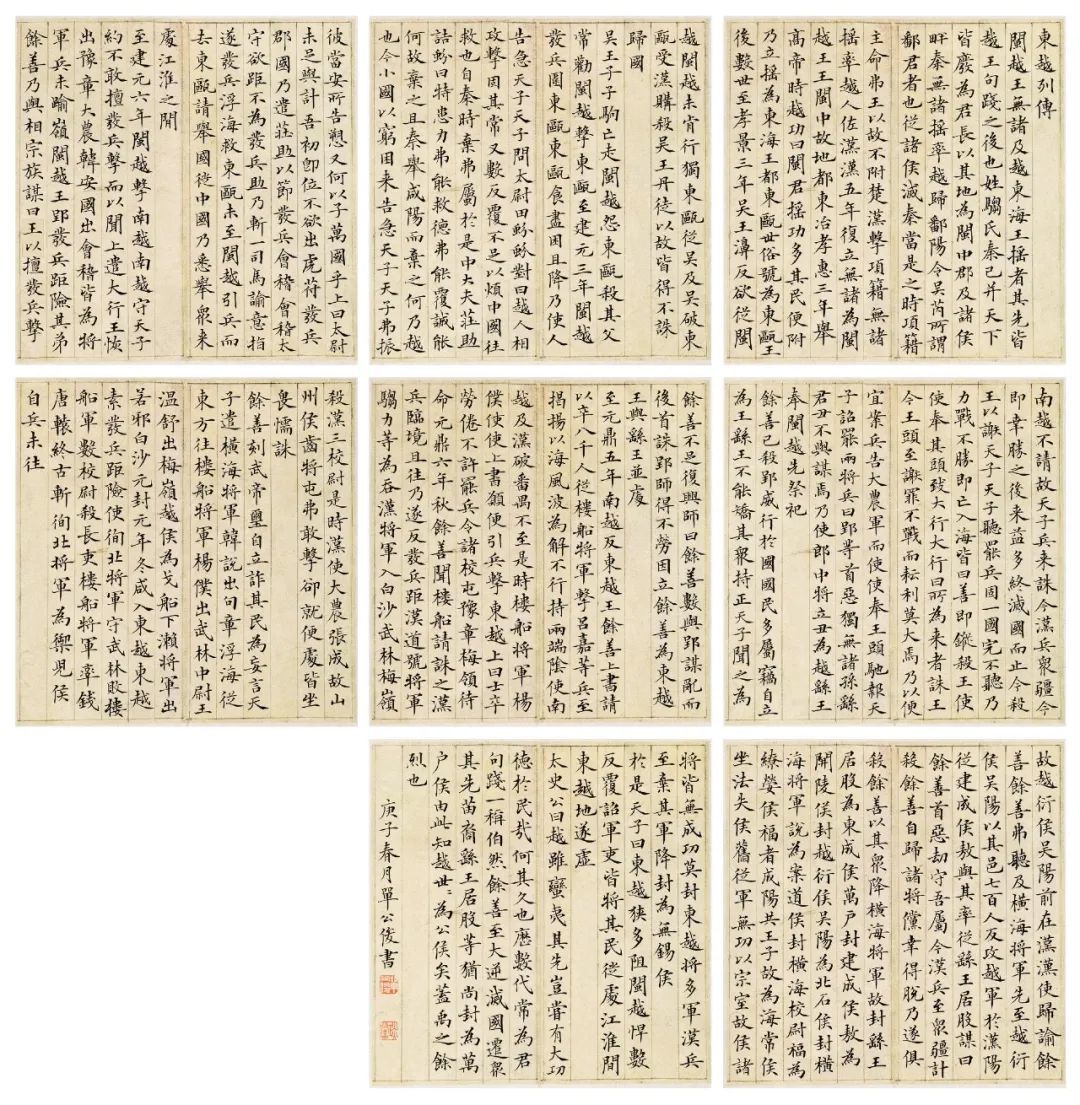 東越列傳
閩越王無諸及越東海王搖者其先皆
越王句踐之後也姓騶氏秦已并天下
皆廢為君長以其地為閩中郡及諸侯
畔秦無諸搖率越歸鄱陽令吳芮所謂
鄱君者也從諸侯滅秦當是之時項籍
主命弗王以故不附楚漢擊項籍無諸
搖率越人佐漢漢五年復立無諸為閩
越王王閩中故地都東冶孝惠三年舉
高帝時越功曰閩君搖功多其民便附
乃立搖為東海王都東甌世俗號為東甌王
後數世至孝景三年吳王濞反欲從閩
越閩越未肯行獨東甌從吳及吳破東
甌受漢購殺吳王丹徒以故皆得不誅
歸國
吳王子子駒亡走閩越怨東甌殺其父
常勸閩越擊東甌至建元三年閩越
發兵圍東甌東甌食盡困且降乃使人
告急天子天子問太尉田蚡蚡對曰越人相
攻擊固其常又數反覆不足以煩中國往
救也自秦時棄弗屬於是中大夫莊助
詰蚡曰特患力弗能救德弗能覆誠能
何故棄之且秦舉咸陽而棄之何乃越
也今小國以窮困來告急天子天子弗振
彼當安所告愬又何以子萬國乎上曰太尉
未足與計吾初即位不欲出虎符發兵
郡國乃遣莊助以節發兵會稽會稽太
守欲距不為發兵助乃斬一司馬諭意指
遂發兵浮海救東甌未至閩越引兵而
去東甌請舉國徙中國乃悉舉眾來
處江淮之閒
至建元六年閩越擊南越南越守天子
約不敢擅發兵擊而以聞上遣大行王恢
出豫章大農韓安國出會稽皆為將
軍兵未踰嶺閩越王郢發兵距險其弟
餘善乃與相宗族謀曰王以擅發兵擊
南越不請故天子兵來誅今漢兵眾彊今
即幸勝之後來益多終滅國而止今殺
王以謝天子天子聽罷兵固一國完不聽乃
力戰不勝即亡入海皆曰善即鏦殺王使
使奉其頭致大行大行曰所為來者誅王
今王頭至謝罪不戰而耘利莫大焉乃以便
宜案兵告大農軍而使使奉王頭馳報天
子詔罷兩將兵曰郢等首惡獨無諸孫繇
君丑不與謀焉乃使郎中將立丑為越繇王
奉閩越先祭祀
餘善已殺郢威行於國國民多屬竊自立
為王繇王不能矯其眾持正天子聞之為
餘善不足復興師曰餘善數與郢謀亂而
後首誅郢師得不勞因立餘善為東越
王與繇王並處
至元鼎五年南越反東越王餘善上書請
以卒八千人從樓船將軍擊呂嘉等兵至
揭揚以海風波為解不行持兩端陰使南
越及漢破番禺不至是時樓船將軍楊
僕使使上書願便引兵擊東越上曰士卒
勞倦不許罷兵令諸校屯豫章梅領待
命元鼎六年秋餘善聞樓船請誅之漢
兵臨境且往乃遂反發兵距漢道號將軍
騶力等為吞漢將軍入白沙武林梅嶺
殺漢三校尉是時漢使大農張成故山
州侯齒將屯弗敢擊卻就便處皆坐
畏懦誅
餘善刻武帝璽自立詐其民為妄言天
子遣橫海將軍韓說出句章浮海從
東方往樓船將軍楊僕出武林中尉王
溫舒出梅嶺越侯為戈船下瀨將軍出
若邪白沙元封元年冬咸入東越東越
素發兵距險使徇北將軍守武林敗樓
船軍數校尉殺長吏樓船將軍率錢
唐轅終古斬徇北將軍為禦兒侯
自兵未往
故越衍侯吳陽前在漢漢使歸諭餘
善餘善弗聽及橫海將軍先至越衍
侯吳陽以其邑七百人反攻越軍於漢陽
從建成侯敖與其率從繇王居股謀曰
餘善首惡劫守吾屬今漢兵至眾彊計
殺餘善自歸諸將儻幸得脫乃遂俱
殺餘善以其眾降橫海將軍故封繇王
居股為東成侯萬戶封建成侯敖為
開陵侯封越衍侯吳陽為北石侯封橫
海將軍說為案道侯封橫海校尉福為
繚嫈侯福者成陽共王子故為海常侯
坐法失侯舊從軍無功以宗室故侯諸
將皆無成功莫封東越將多軍漢兵
至棄其軍降封為無錫侯
於是天子曰東越狹多阻閩越悍數
反覆詔軍吏皆將其民徙處江淮間
東越地遂虛
太史公曰越雖蠻夷其先豈嘗有大功
德於民哉何其久也歷數代常為君王
句踐一稱伯然餘善至大逆滅國遷眾
其先苗裔繇王居股等猶尚封為萬
戶侯由此知越世〻為公侯矣蓋禹之餘
烈也
庚子春月單公俊書